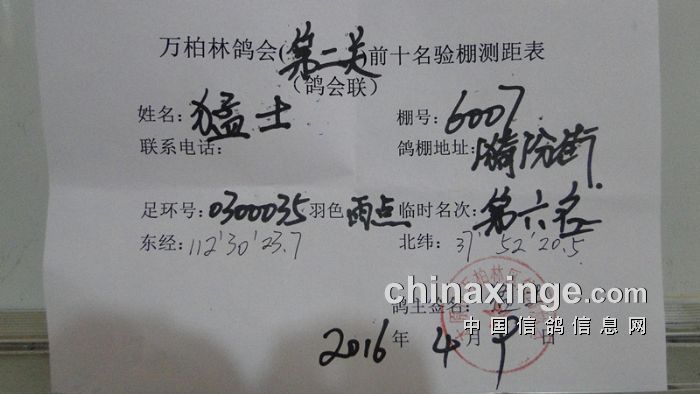 万柏林鸽会(第二关)前十名验棚测距表
(鸽会联)
姓名:猛士 棚号:6007
联系电话: 鸽棚地址:漪汾街
足环号:0300035 羽色 雨点 临时名次:第六名
东经:112°30'23.7 北纬:37°52'20.5
鸽主签名:
2016年4月9日
chinaxinge.com
中国信鸽信息网